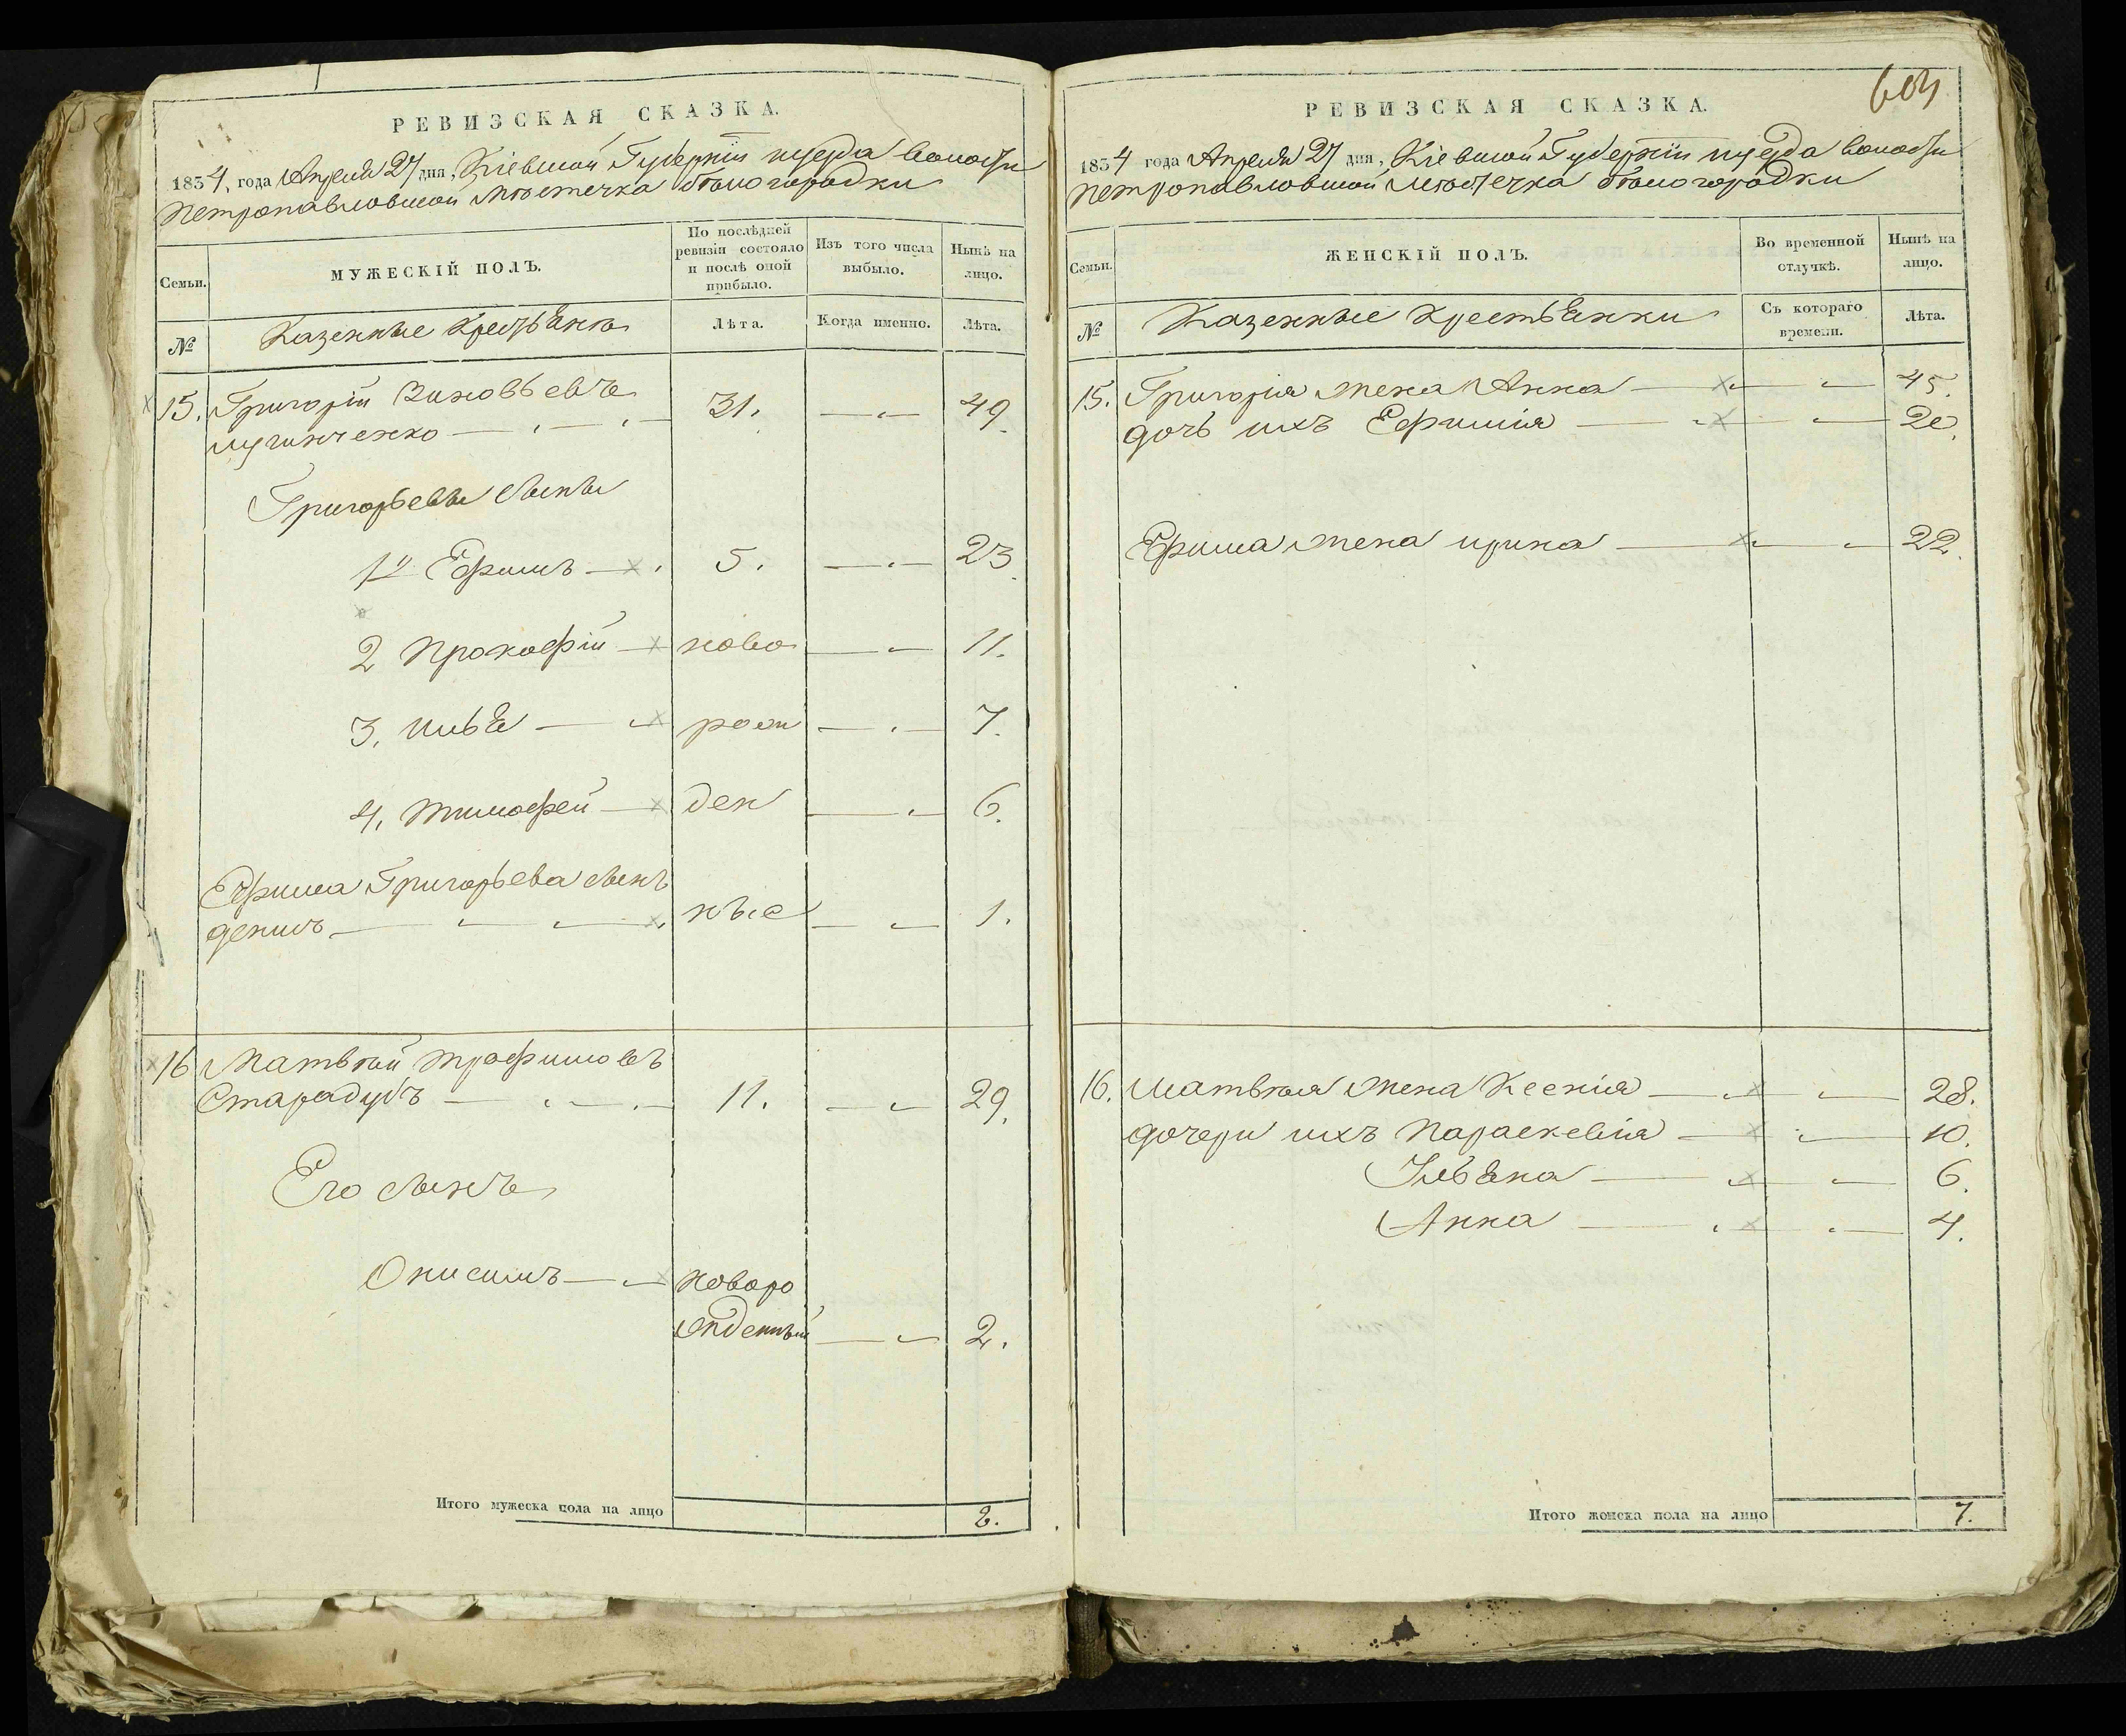 РЕВИЗСКАЯ СКАЗКА.
1834, года Апреля 27 дня, Кіевской Губерніи иуезда волости
Петропавловской Мѣстечка бѣлогородки
Семьи.
МУЖЕСКІЙ ПОЛЪ.
По послѣдней ревизіи состояло и послѣ оной прибыло.
Изъ того числа выбыло.
Нынѣ на лицо.
№
Казенные Крестьяне
Лѣта.
Когда именно.
Лѣта.
15. Григорій Зиновьевъ
лугинченко 31. 49.
Григорьевы сыны
1й Ефимъ 5. 23.
2 Прокофій ново 11.
3. илья рож 7.
4. тимофей ден 6.
Ефима Григорьева сынъ
денисъ ные 1.
16 Матвѣй трофимовъ
Стародубъ 11. 29.
Его сынъ
Онисимъ новоро
жденный 2.
Итого мужеска пола на лицо 8.
603
РЕВИЗСКАЯ СКАЗКА.
1834 года Апреля 27 дня, Кіевской Губерніи иуезда волости
Петропавловской Мѣстечка бѣлогородки
Семьи.
ЖЕНСКІЙ ПОЛЪ.
Во временной отлучкѣ.
Нынѣ на лицо.
№
Казенные крестьянки
Съ котораго времени.
Лѣта.
15. Григорія жена Анна 45.
дочь ихъ Ефимія 20.
Ефима жена ирина 22.
16. Матвѣя жена Ксенія 28.
дочери ихъ Параскевія 10.
Ульяна 6.
Анна 4.
Итого женска пола на лицо 7.